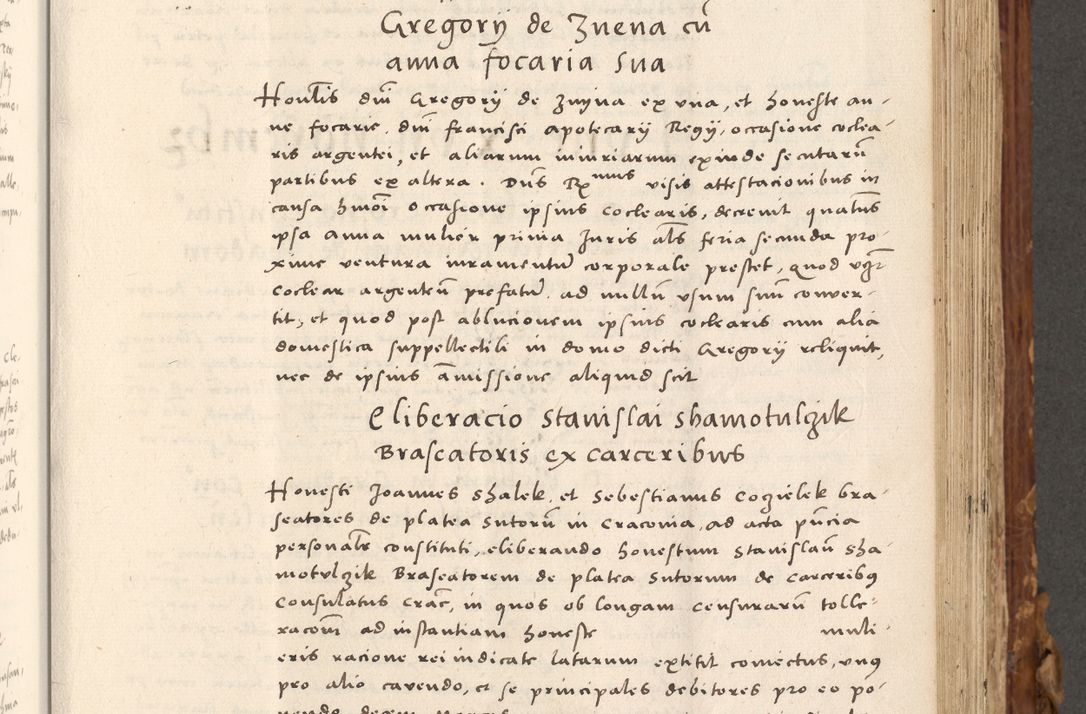 Gregorÿ de Znena cū
anna focaria sua
Honlis dni Gregorÿ de Znyna ex vna, et honeste an-
ne focarie, dni francisci apotecarÿ Regÿ, occasione coclea-
ris argentei, et aliarum iniuriarum exinde secutarū
partibus ex altera. Dns Rmus visis attestacionibus in
causa hmōi occasione ipsius coclearis, decreuit quatūs
ipsa anna mulier prima Juris als feria secunda pro-
xime ventura iuramentū corporale prestet, quod
coclear argenteū prefatū, ad nullū vsum suū conuer-
tit, et quod post ablucionem ipsius coclearis cum alia
domestica suppellectili in domo dicti Gregorÿ reliquit,
nec de ipsius amissione aliquid scit
Eliberacio Stanislai Shamotulczik
Braseatoris ex carceribus
Honesti Joannes Shalek, et Sebestianus Cozielek bra-
seatores de platea Sutorū in Craconia, ad acta pn̄cia
personalr constituti, eliberando honestum Stanislaū Sha-
motulczik Braseatorem de platea Sutorum de carceribꝰ
Consulatus Crac, in quos ob longam censurarū tolle-
racom̄ ad instantiam honeste muli-
eris racione rei indicate latarum extitit coniectus, vnꝰ
pro alio cavendo, et se principales debitores pro eo po-